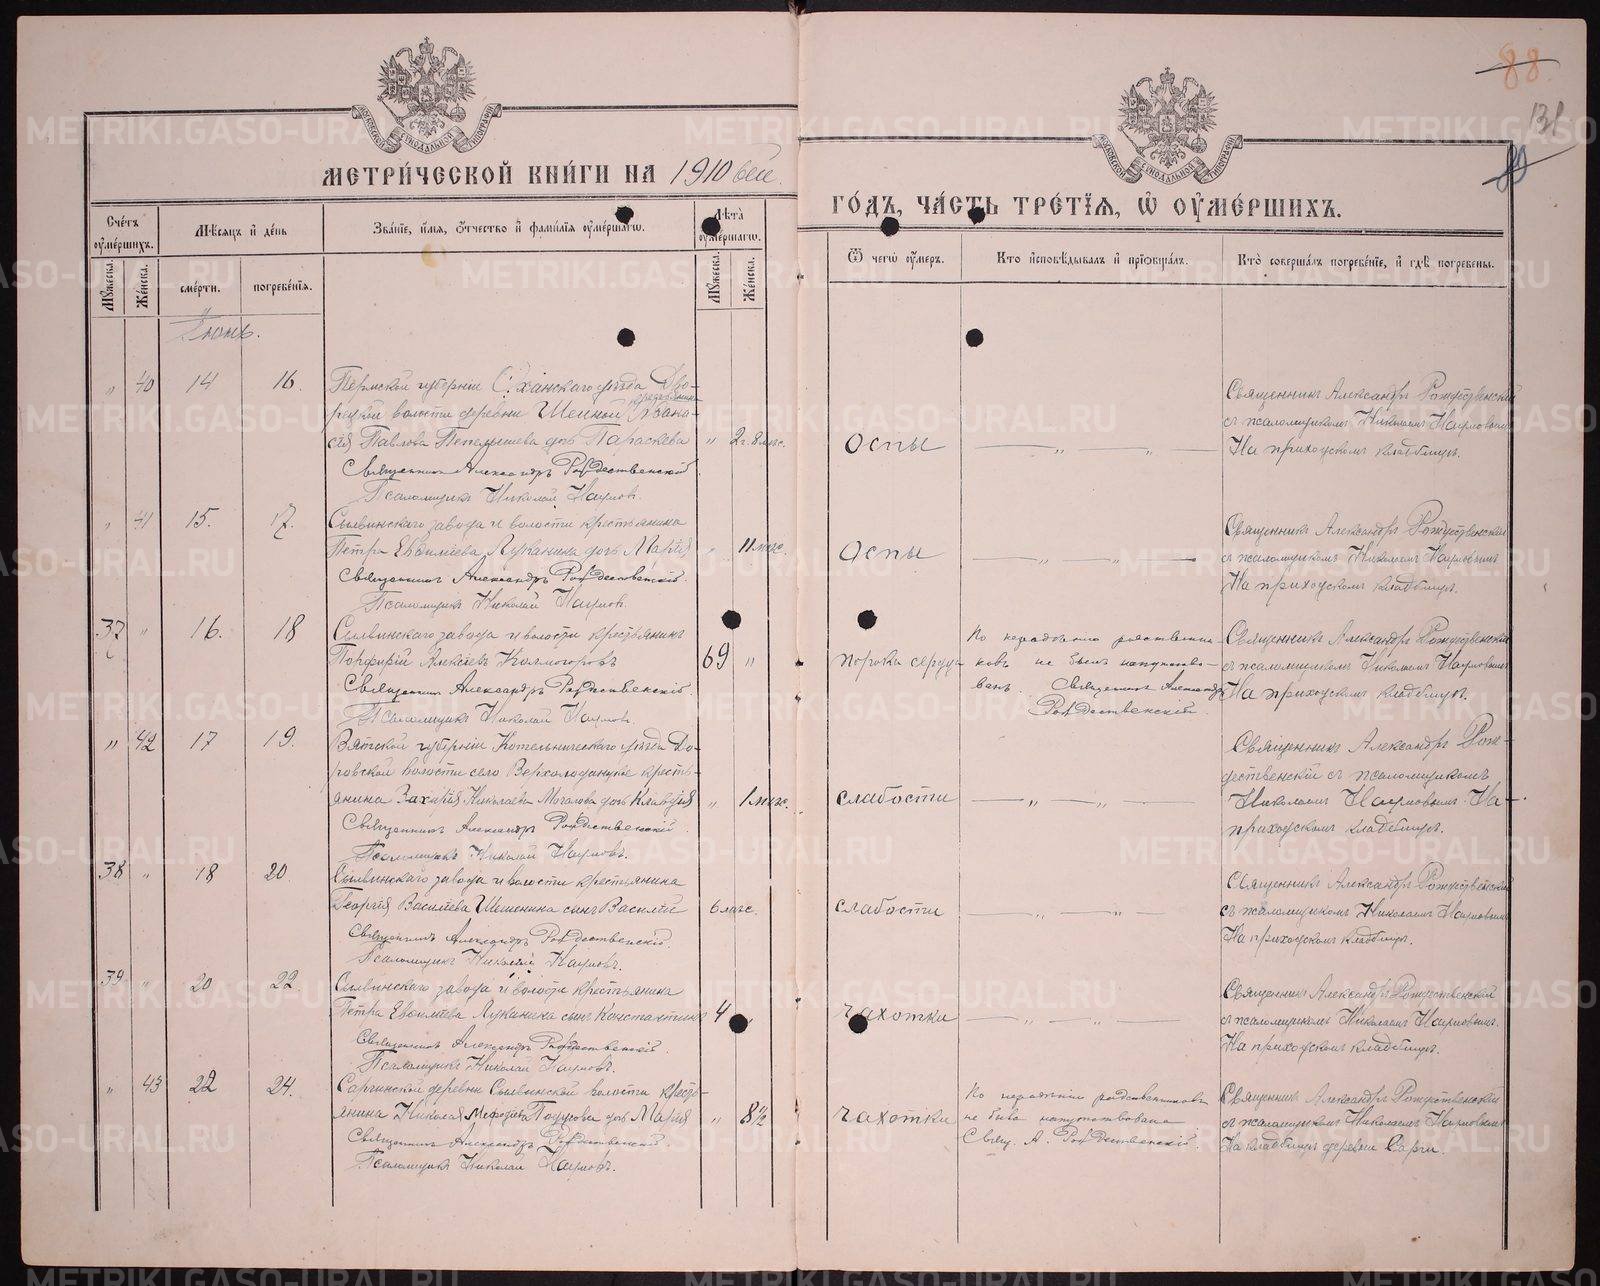 МЕТРИ́ЧЕСКОЙ КНИ́ГИ НА 1910 ый
ГО́ДЪ, ЧА́СТЬ ТРЕ́ТІЯ, Ѿ ОУ҆МЕ́РШИХЪ.
88
131
Сче́тъ оу҆ме́ршихъ.
Мѣ́сяцъ и҆ де́нь
Зва́нїе, и҆́мя, ѻ҆́тчество и҆ фами́лїя оу҆ме́ршагѡ.
Лѣ́та оу҆ме́ршагѡ.
Ѿ чегѡ̀ оу҆́меръ.
Кто̀ и҆сповѣ́дывалъ и҆ прїѡбща́лъ.
Кто̀ соверша́лъ погребе́нїе, и҆ гдѣ̀ погребе́ны.
Му́жеска.
Же́нска.
сме́рти.
погребе́нїя.
Му́жеска.
Же́нска.
Іюнь.
" 40 14 16.
Пермской губерніи Оханскаго уѣзда Дво-
рецкой волости деревни Шениной крестьянина Афана-
сія Павлова Пепелышева дочь Параскева " 2 г. 8 мѣс.
Священникъ Александръ Рождественскій
Псаломщикъ Николай Наумовъ.
Оспы
— " — " —
Священникъ Александръ Рождественскій
съ псаломщикомъ Николаемъ Наумовымъ
На приходскомъ кладбищѣ.
" 41 15. 17.
Сылвинскаго завода и волости крестьянина
Петра Евѳиміева Луканина дочь Марія " 11 мѣс.
Священникъ Александръ Рождественскій.
Псаломщикъ Николай Наумовъ.
Оспы
— " — " —
Священникъ Александръ Рождественскій
съ псаломщикомъ Николаемъ Наумовымъ
На приходскомъ кладбищѣ.
37 " 16. 18
Сылвинскаго завода и волости крестьянинъ
Порфирій Алексѣевъ Колмогоровъ 69 "
Священникъ Александръ Рождественскій.
Псаломщикъ Николай Наумовъ.
порока сердца
По нерадѣнію родственни-
ковъ не былъ напутство-
ванъ. Священникъ Александръ
Рождественскій.
Священникъ Александръ Рождественскій
съ псаломщикомъ Николаемъ Наумовымъ
На приходскомъ кладбищѣ.
" 42 17 19.
Вятской губерніи Котельническаго уѣзда До-
ровской волости село кресть-
янина Захарія Николаева Мочалова дочь Клавдія " 1 мѣс.
Священникъ Александръ Рождественскій.
Псаломщикъ Николай Наумовъ.
слабости
— " — " —
Священникъ Александръ Рож-
дественскій съ псаломщикомъ
Николаемъ Наумовымъ. На
приходскомъ кладбищѣ.
38 " 18 20.
Сылвинскаго завода и волости крестьянина
Георгія Василіева Шешенина сынъ Василій 6 мѣс.
Священникъ Александръ Рождественскій.
Псаломщикъ Николай Наумовъ.
слабости
— " — " —
Священникъ Александръ Рождественскій
съ псаломщикомъ Николаемъ Наумовымъ
На приходскомъ кладбищѣ.
39 " 20 22.
Сылвинскаго завода и волости крестьянина
Петра Евѳиміева Луканина сынъ Константинъ 4 "
Священникъ Александръ Рождественскій.
Псаломщикъ Николай Наумовъ.
чахотки
— " — " —
Священникъ Александръ Рождественскій
съ псаломщикомъ Николаемъ Наумовымъ.
На приходскомъ кладбищѣ.
" 43 22 24.
Саргинской деревни Сылвинской волости кресть-
янина Николая Меѳодіева дочь Марія " 8 ½
Священникъ Александръ Рождественскій.
Псаломщикъ Николай Наумовъ.
чахотки
По нерадѣнію родственниковъ
не была напутствована
Свящ. А. Рождественскій.
Священникъ Александръ Рождественскій
съ псаломщикомъ Николаемъ Наумовымъ
На кладбищѣ деревни Сарги.
METRIKI.GASO-URAL.RU